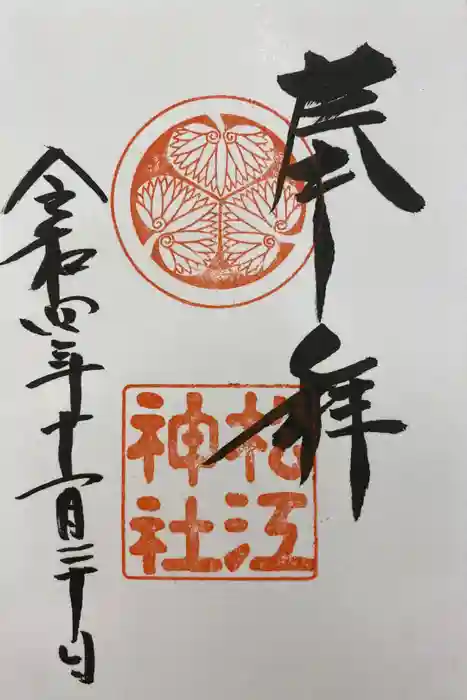 奉拝
松江
神社
令和四年十一月三十日